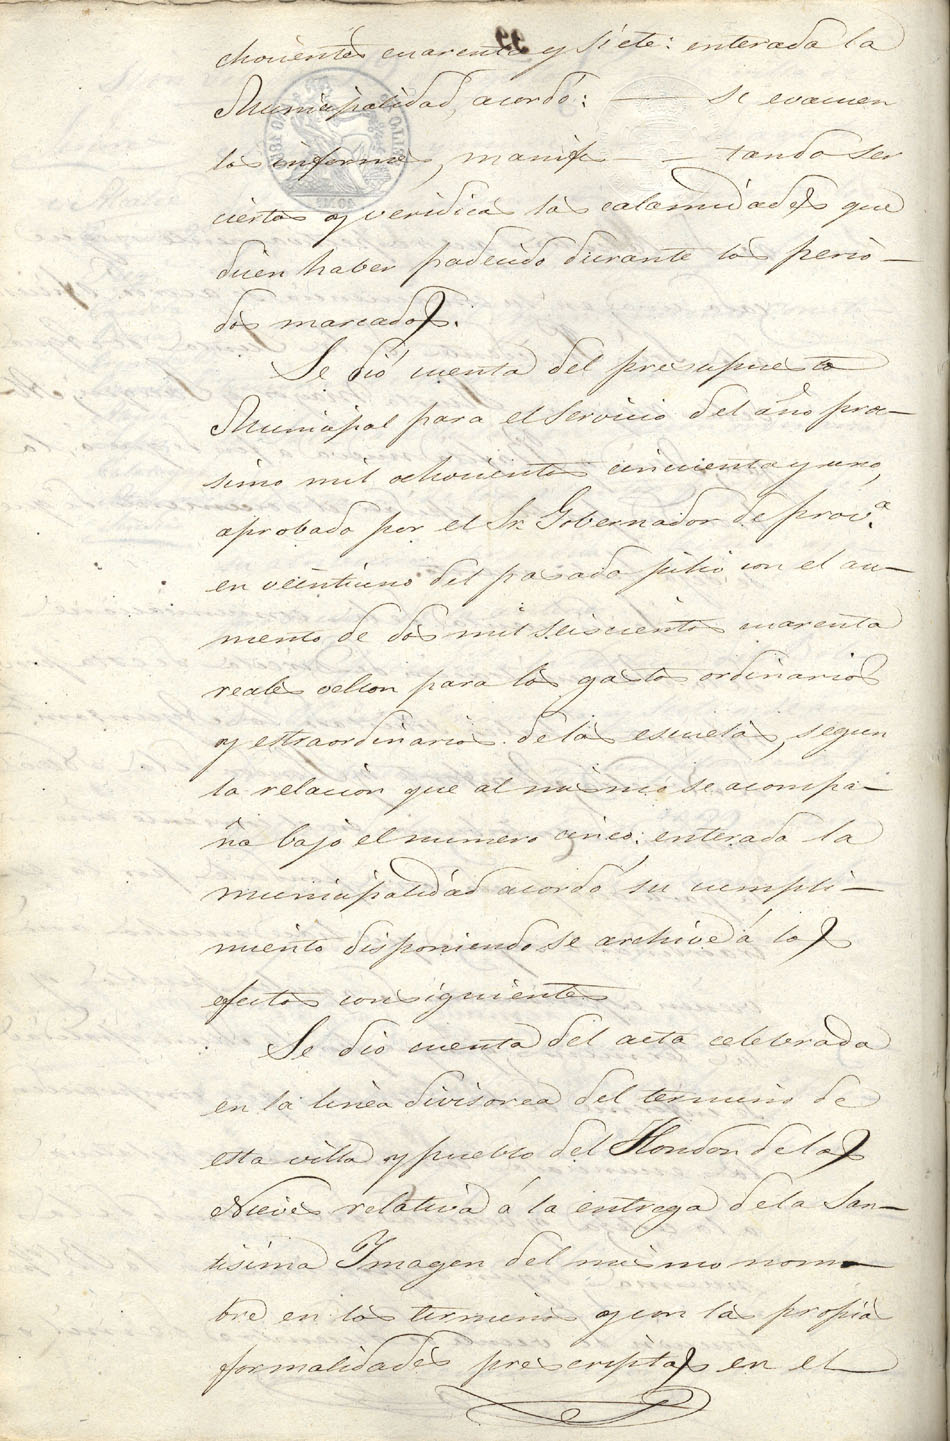 chocientos cuarenta y siete: enterada la
Municipalidad, acordó: — se evacuen
los informes, manifes — — tando ser
ciertas y veridicas las calamidades que
dicen haber padecido durante los perio—
dos marcados.
Se dió cuenta del presupuesto
Municipal para el servicio del año pro—
simo mil ochocientos cincuenta y uno,
aprobado por el Sr. Gobernador de prov.ª
en veintiuno del pasado julio con el au—
mento de dos mil seiscientos cuarenta
reales vellon para los gastos ordinarios
y estraordinarios de las escuelas, segun
la relacion que al mismo se acompa—
ña bajo el numero cinco: enterada la
municipalidad acordó su cumpli—
miento disponiendo se archive á los
efectos consiguientes
Se dió cuenta del acta celebrada
en la linea divisorea del termino de
esta villa y pueblo del Hondon de las
Nieves relativa á la entrega de la San—
tisima Imagen del mismo nom—
bre en los terminos y con las propias
formalidades prescriptas en el